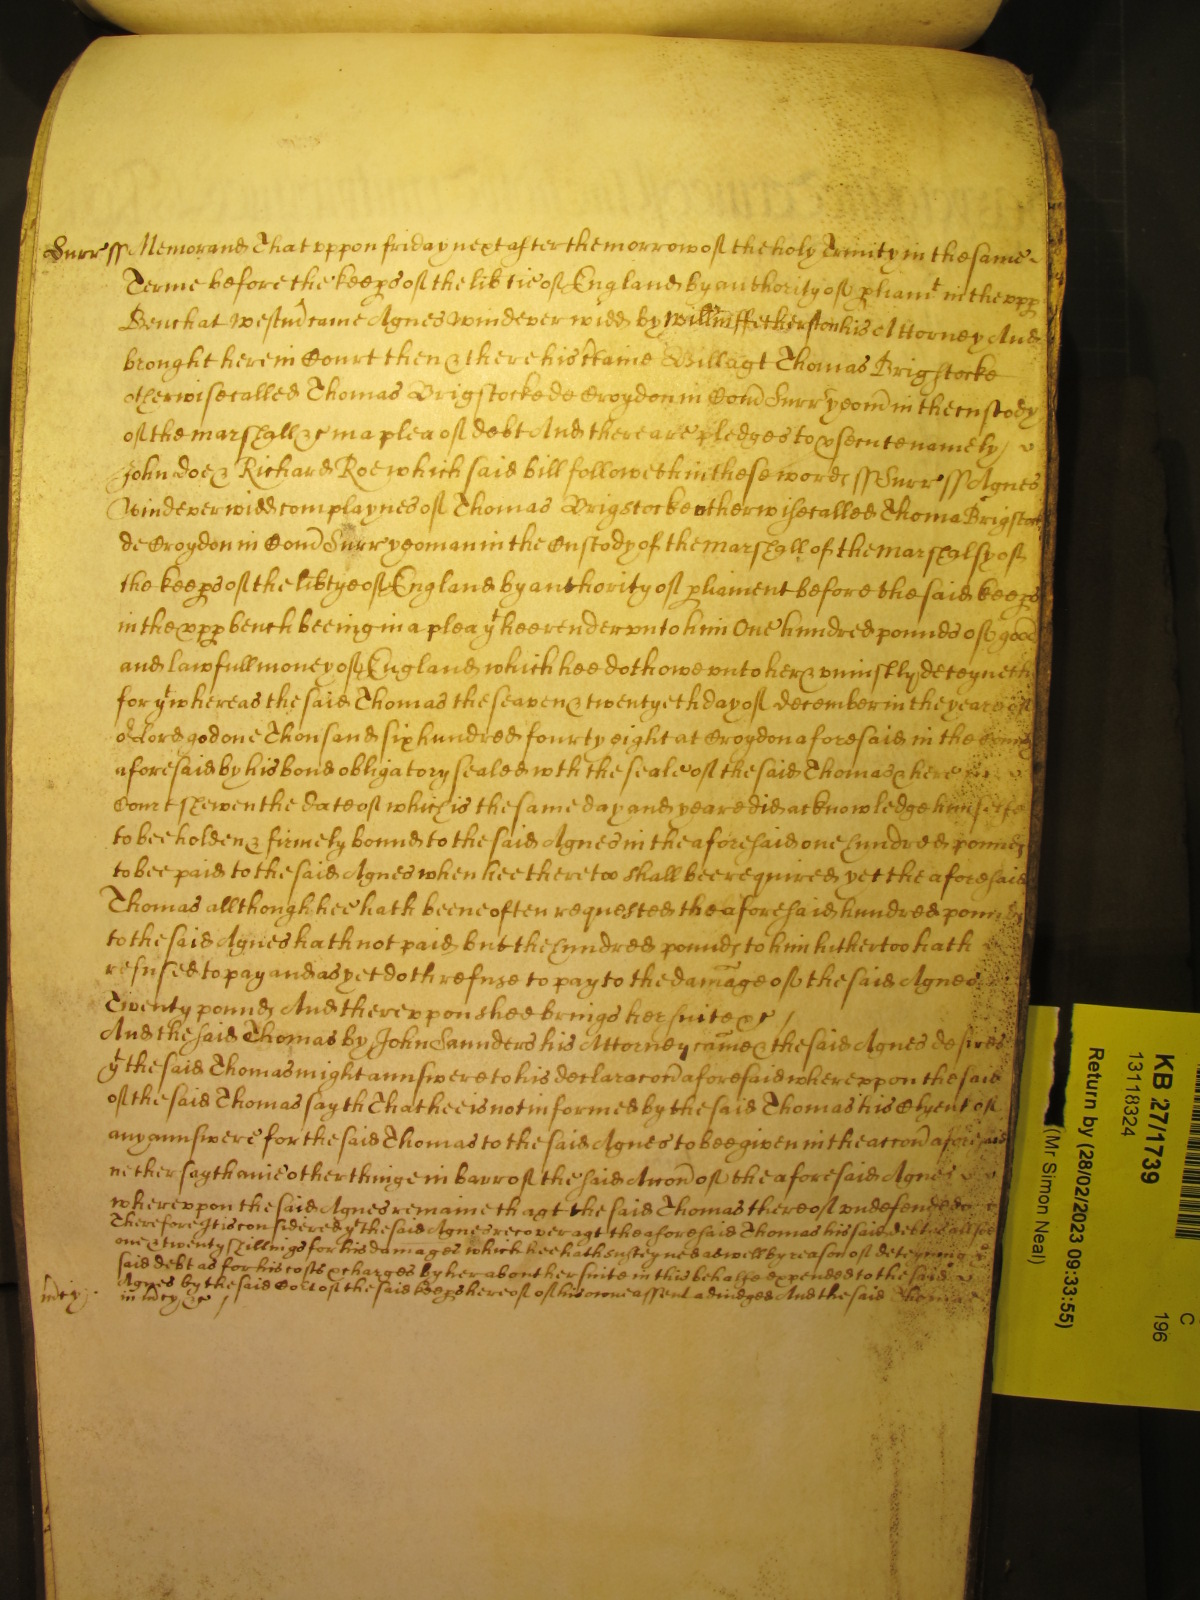 Surr ss Memorand That vppon friday next after the morrow of the holy Trinity in the same
Terme before the keeps of the libtie of England by authority of pliamt in the vpp
Bench at westm came Agnes Windever widd by Willm ffetherston his Attorney And
brought here in Court then & there his ctaine Bill agt Thomas Brigstocke
otherwise called Thomas Brigstocke de Croydon in Com Surr yeom in the custody
of the marshall &c in a plea of debt And there are pledges to psecute namely
John Doe & Richard Roe which said bill followeth in these words ss Surr ss Agnes
Windever widd complaynes of Thomas Brigstocke otherwise called Thoma Brigstock
de Croydon in Com Surr yeoman in the Custody of the marshall of the marshalsy of
the keeps of the libtye of England by authority of pliament before the said keeps
in the vpp bench beeing in a plea yt hee render vnto him One hundred pounds of good
and lawfull money of England which hee doth owe vnto her & vniustly deteyneth
for yt whereas the said Thomas the seaven & twentyeth day of december in the yeare of
or Lord god one Thousand six hundred fourty eight at Croydon aforesaid in the County
aforesaid by his bond obligatory sealed wth the seale of the said Thomas & here in
Court shewen the date of which is the same day and yeare did acknowledge himselfe
to bee holden & firmely bound to the said Agnes in the aforesaid one hundred pounds
to bee paid to the said Agnes when hee theretoo shall bee required yet the aforesaid
Thomas allthough hee hath beene often requested the aforesaid hundred pounds
to the said Agnes hath not paid but the hundred pounds to him hithertoo hath
refused to pay and as yet doth refuse to pay to the damage of the said Agnes
Twenty pounds And therevpon shee brings her suite &c
And the said Thomas by John Saunders his Attorney came & the said Agnes desires
yt the said Thomas might annswere to his declaracon aforesaid wherevppon the said
of the said Thomas sayth That hee is not informed by the said Thomas his Clyent of
any annswere for the said Thomas to the said Agnes to bee given in the accon aforesaid
nether sayth anie other thinge in barr of the said Accon of the aforesaid Agnes
wherevpon the said Agnes remaineth agt the said Thomas thereof vndefended
Therefore It is considered yt the said Agnes recover agt the aforesaid Thomas his said debt & allsoe
one & twenty shillings for his damages which hee hath susteyned as well by reason of deteyning ye
said debt as for his costs & charges by her about her suite in this behalfe expended to the said
Agnes by the said Court of the said keeps here of his owne assent adiudged And the said Thomas
mcy in mcy &c
KB 27/1739
13118324
Return by (28/02/2023 09:33:55)
(Mr Simon Neal)
C
196